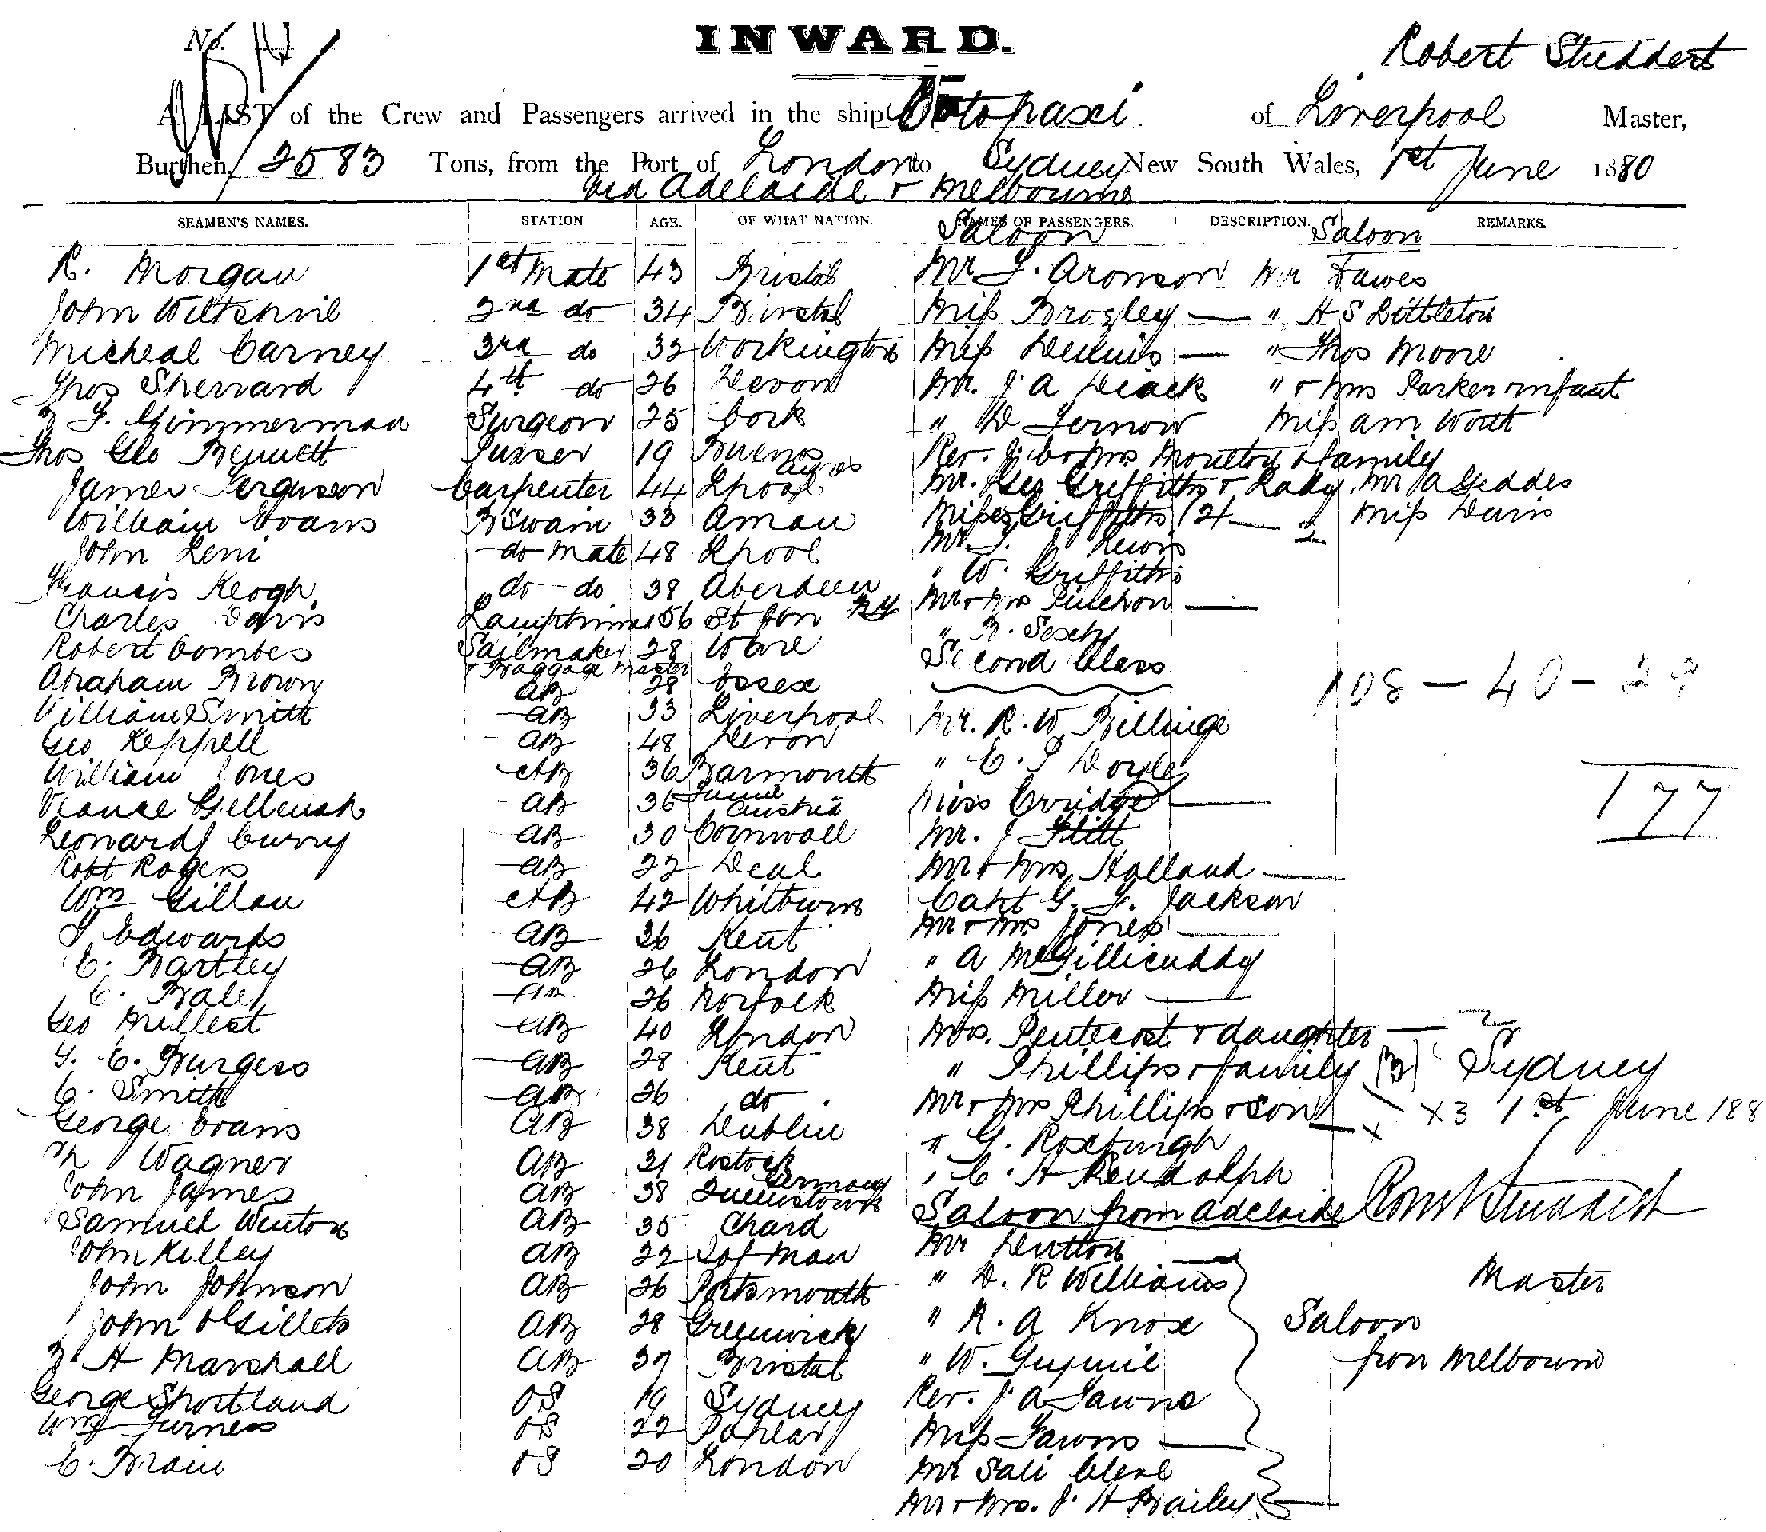 No.
INWARD.
Robert Studdert
A LIST of the Crew and Passengers arrived in the ship Cotopaxi of Liverpool Master,
Burthen 2583 Tons, from the Port of London to Sydney New South Wales, 1st June 1880
via Adelaide & Melbourne
SEAMEN'S NAMES. STATION AGE. OF WHAT NATION. NAMES OF PASSENGERS. DESCRIPTION. REMARKS.
Saloon Saloon
R. Morgan 1st Mate 43 Bristol Mr Aronson Mr Fawes
John Wiltshire 2nd do 34 Bristol Miss Brogley — " H S Littleton
Micheal Carney 3rd do 32 Workington Miss Dennis — " Thos Moore
Thos Sherrard 4th do 26 Devon Mr. J A Deack " & Mrs Parker & infant
Zimmerman Surgeon 25 Cork " D Fernow Miss Am Worth
Thos Geo Bennett Purser 19 Buenos Ayres Rev. J. C & Mrs Moulton & family
James Ferguson Carpenter 44 Lpool Mr. Geo Griffiths & Lady Mr A Geddes
William Evans B Swain 33 Aman Misses Griffiths (2) — 2 Miss Davis
John Leni do mate 48 Lpool Mr. Lewis
Francis Keogh do - do 38 Aberdeen " W. Griffiths
Charles Davis Lamptrimr 56 St Jon Mr & Mrs Pinchon —
Robert Combes Sailmaker 28 Ware "
& Baggage Master Second Class
Abraham Brown AB 28 Essex 108 - 40 - 29
William Smith AB 33 Liverpool Mr. R. W Billinge
Geo Keppell AB 48 Devon
William Jones AB 36 Yarmouth " C. Doyle 177
AB 36 Austria Miss —
Leonard Curry AB 30 Cornwall Mr. J Flitt
Robt Rogers AB 22 Deal Mr & Mrs Holland —
Wm Gillan AB 42 Whitburn Capt G. F. Jackson
Edwards AB 36 Kent Mr & Mrs Jones —
C. Bartley AB 26 London " A McGillicuddy
C. Baley AB 26 Norfolk Miss Miller —
Geo Millest AB 40 London Mrs. Pentecost & daughter — 2
G. C. Burgess AB 28 Kent " Phillips & family (3) Sydney
C. Smith AB 26 do Mr & Mrs Phillips & son x3 1st June 188
George Evans AB 38 Dublin " G. Roseburgh
Wagner AB 31 Rostock Germany " C. H Rendolph
John James AB 38 Saloon from Adelaide Robt Studdert
Samuel Winton AB 35 Chard Mr Dutton —
John Killey AB 22 I of Man " D. R Williams Master
John Johnson AB 26 Portsmouth
John AB 28 Greenwich " R. A Knox Saloon
H Marshall AB 37 Bristol " W. from Melbourne
George Shortland OS 19 Sydney Rev. J A
Wm Furness OS 22 Poplar Miss —
C. Brain OS 20 London Mr
Mr & Mrs. J. H Bailey —